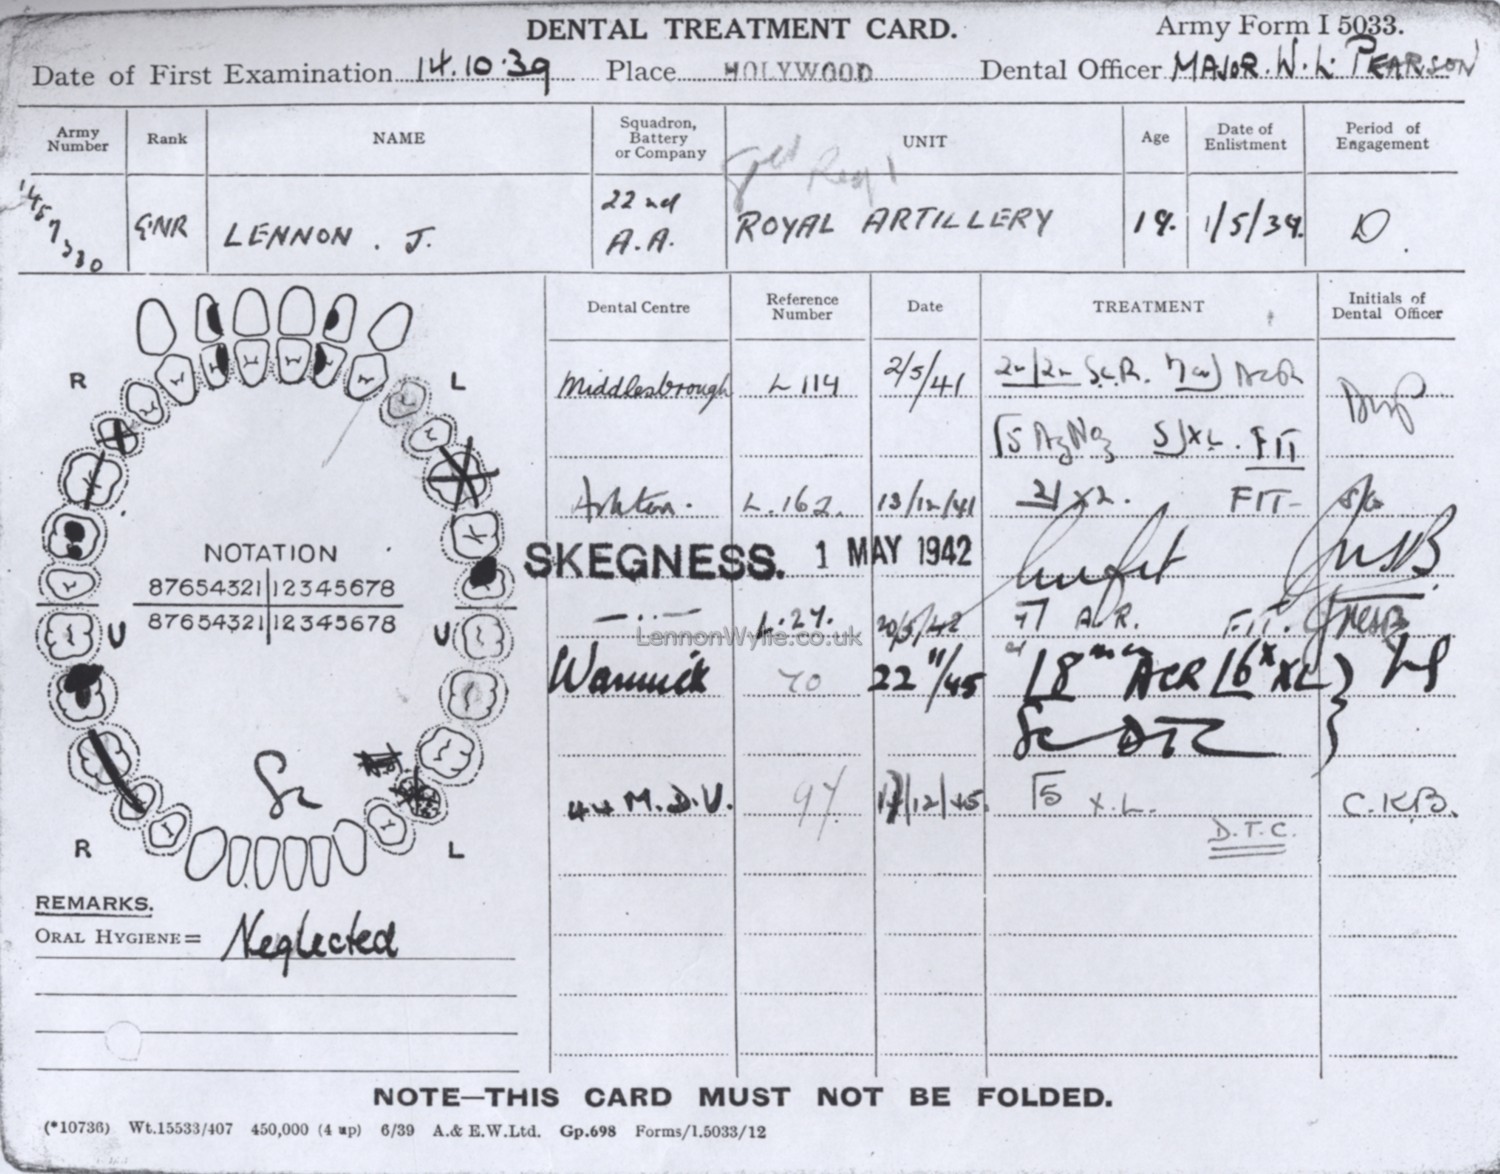 DENTAL TREATMENT CARD.
Army Form I 5033.
Date of First Examination 14.10.39 Place HOLYWOOD Dental Officer MAJOR. W. L. PEARSON
Army Number
Rank
NAME
Squadron, Battery or Company
UNIT
Age
Date of Enlistment
Period of Engagement
GNR
LENNON. J.
22nd A.A.
ROYAL ARTILLERY
19.
1/5/39.
D.
Dental Centre
Reference Number
Date
TREATMENT
Initials of Dental Officer
R
L
Middlesbrough L 114 2/5/41
5 AgNO3 5 XL. FIT
L.162. 13/12/41 2 XL. FIT-
NOTATION
87654321 12345678
87654321 12345678
U
U
SKEGNESS. 1 MAY 1942
L.27. 20/5/42 7 FIT.
LennonWylie.co.uk
Warwick 70 22 11/45 8 ACR 6 XL
Sc
44 M.D.U. 97 /12/45. 5 X.L. C.K.B.
D.T.C.
R
L
REMARKS.
ORAL HYGIENE= Neglected
NOTE—THIS CARD MUST NOT BE FOLDED.
(*10736) Wt.15533/407 450,000 (4 up) 6/39 A.& E.W.Ltd. Gp.698 Forms/I.5033/12